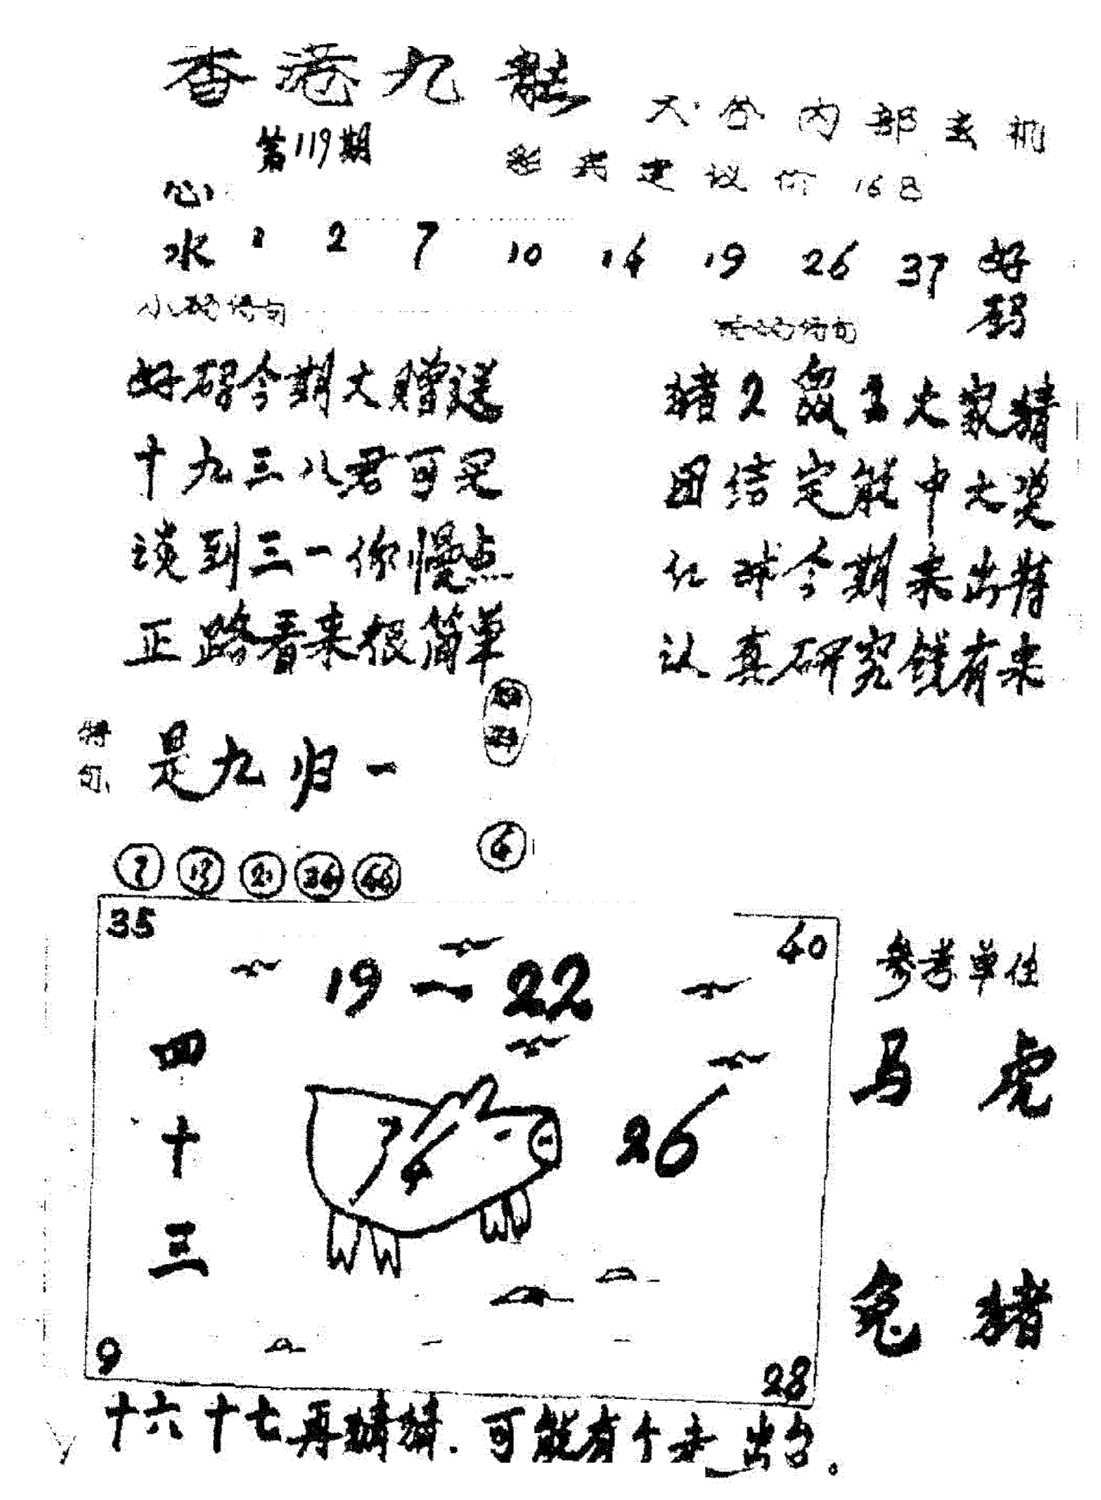 香港九龙
内部玄机
第119期
建议价168
心水 1 2 7 10 14 19 26 37 好码
小码诗句
诗句
好码今期大赠送
十九三八君可见
谈到三一你慢点
正路看来很简单
猪2鼠2大家猜
团结定能中大奖
红球今期来出特
认真研究钱有来
特句 是九归一
7 19 21 34 44
4
35
40
19一22
四十三
26
9
28
参考单位
马 虎
兔 猪
十六十七再猜猜.可能有个未出台。